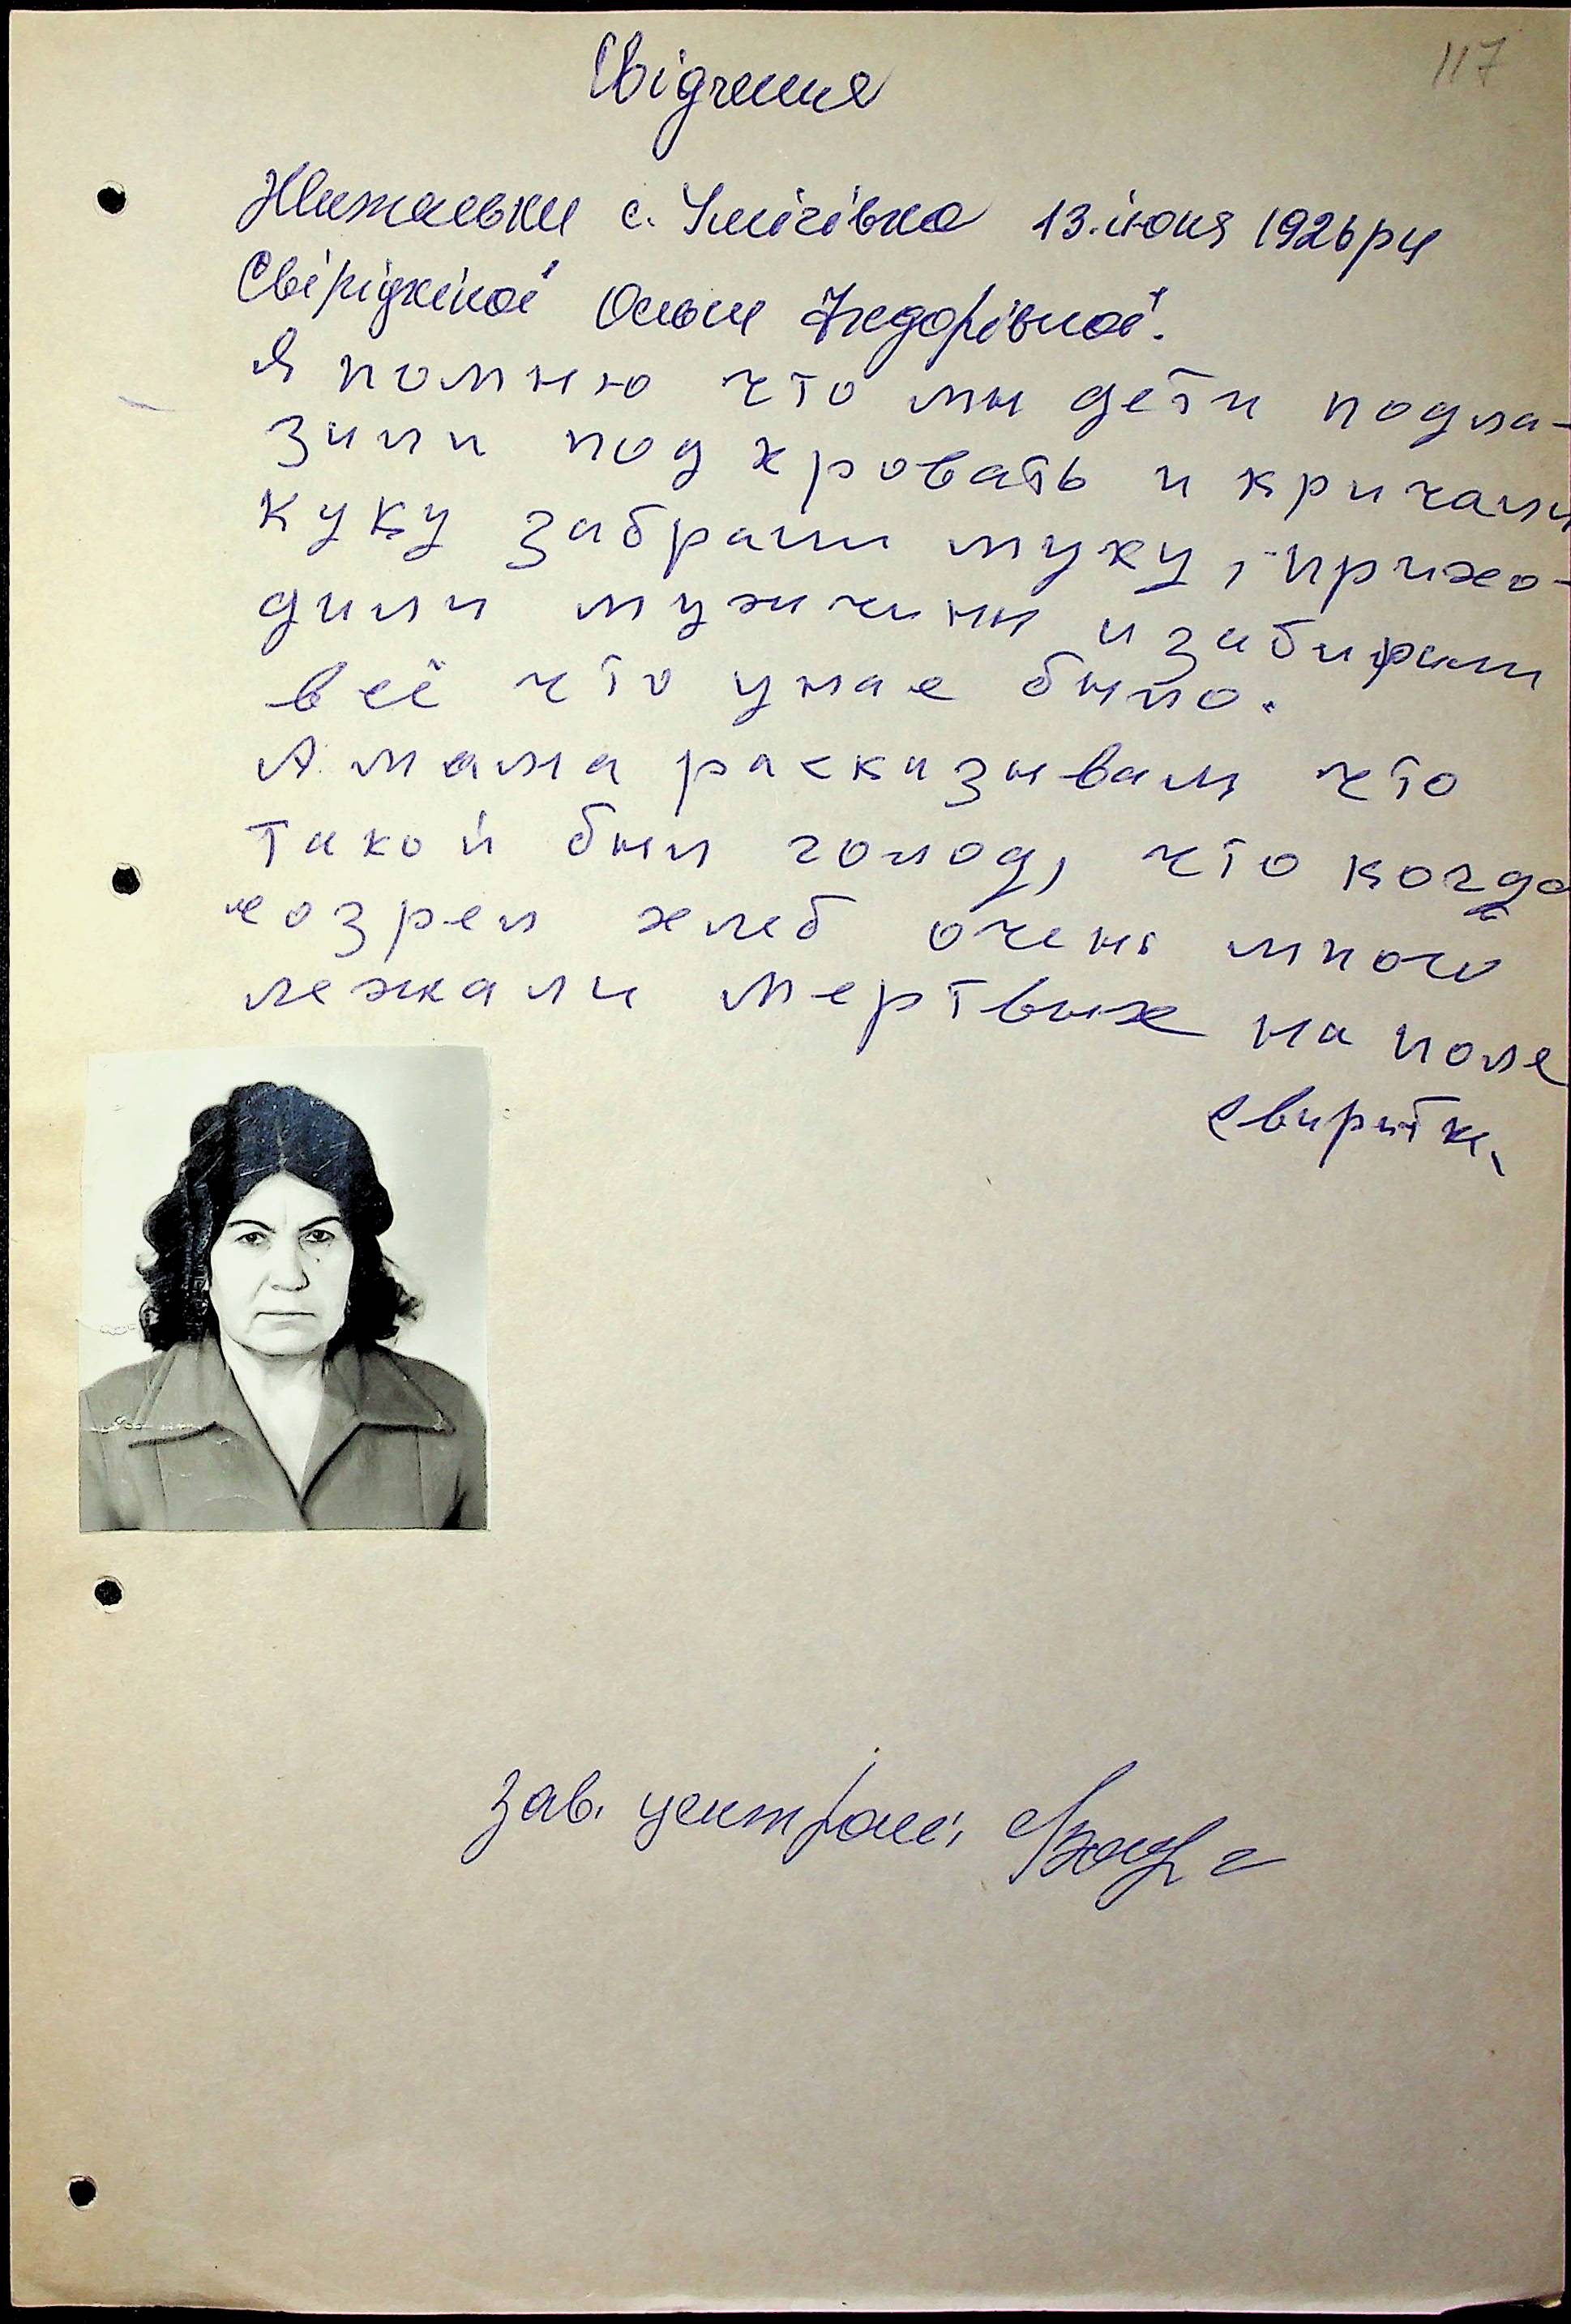 117
Свідчення
Жительки с. Улісівка 13.июня 1926 рн
Свірідкіної Ольги Федорівної.
Я помню что мы дети подла-
зили под кровать и кричали
куку забрали муку, прихо-
дили мужчины и забирали
всё что у нас было.
А мама рассказывал что
такой был голод, что когда
созрел хлеб очень много
лежали мертвых на поле
Свиритк.
Зав. централі